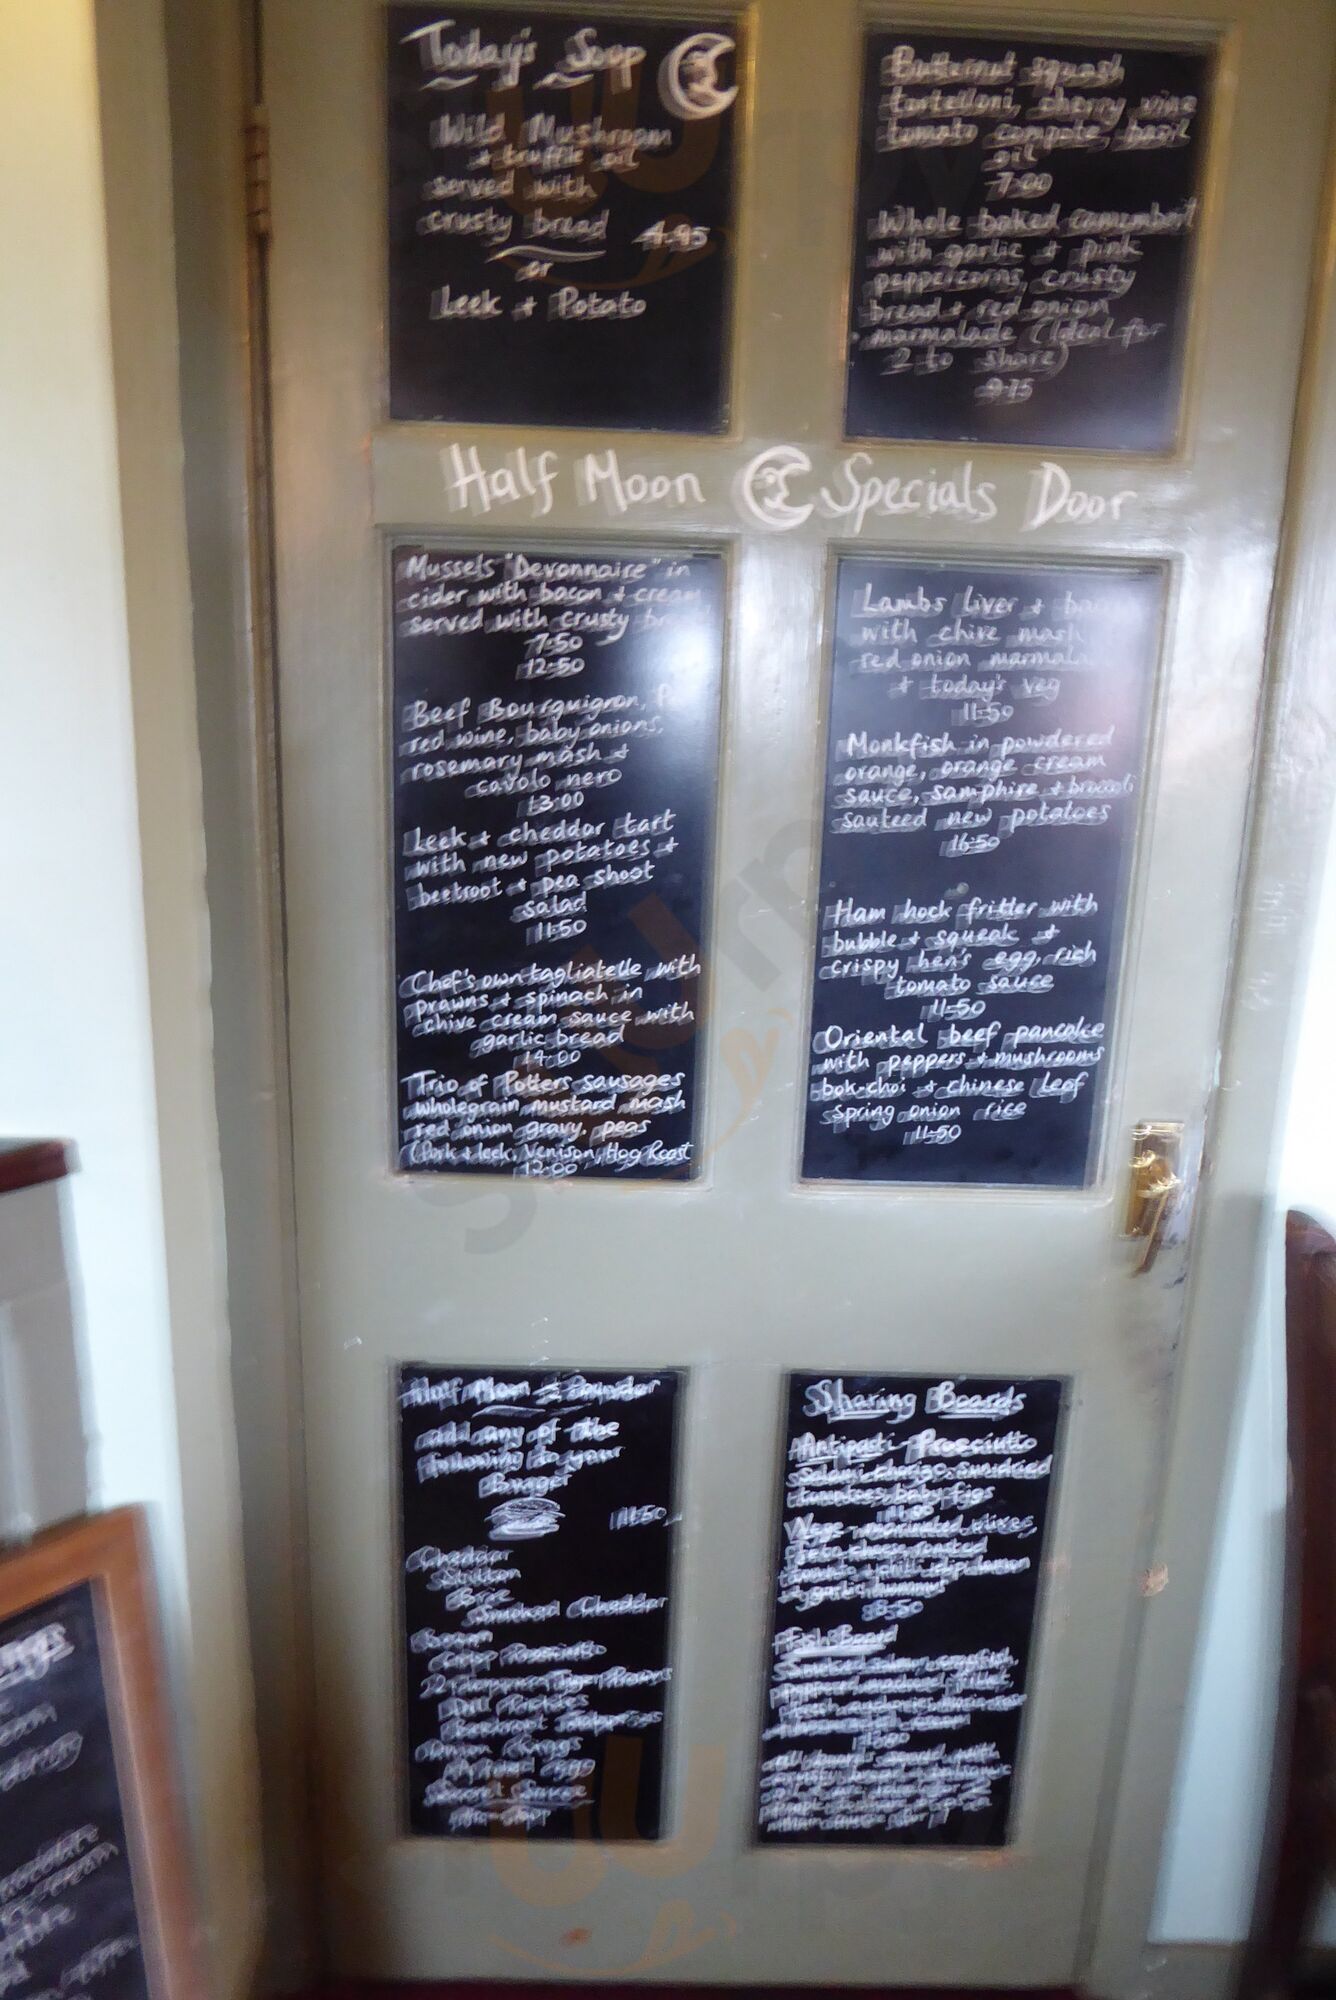 Today's Soup
Wild Mushroom
+ truffle oil
served with
crusty bread 4.95
or
Leek + Potato
Butternut squash
tortelloni, cherry vine
tomato compote, basil
oil
7.00
Whole baked camembert
with garlic + pink
peppercorns, crusty
bread + red onion
marmalade (Ideal for
2 to share)
9.75
Half Moon Specials Door
Mussels "Devonnaire" in
cider with bacon + cream
served with crusty
7.50
12.50
Beef Bourguignon,
red wine, baby onions,
rosemary mash +
cavolo nero
13.00
Leek + cheddar tart
with new potatoes +
beetroot + pea shoot
salad
11.50
Chef's own tagliatelle with
prawns + spinach in
chive cream sauce with
garlic bread
14.00
Trio of Potters sausages
wholegrain mustard mash
red onion gravy, peas
(Pork + leek, Venison, Hog Roast
12.00
Lambs liver +
with chive mash
red onion marmala
+ today's veg
11.50
Monkfish in powdered
orange, orange cream
sauce, samphire + broccoli
sauteed new potatoes
16.50
Ham hock fritter with
bubble + squeak +
crispy hen's egg, rich
tomato sauce
11.50
Oriental beef pancake
with peppers + mushrooms
bok-choi + chinese leaf
spring onion rice
11.50
Half Moon ½ Pounder
add any of the
following to your
Burger
11.50
Cheddar
Stilton
Brie
Smoked Cheddar
Bacon
Crispy Prosciutto
Tiger Prawns
Dill Pickles
Beetroot
Onion Rings
Fried egg
Secret Sauce
Sharing Boards
Antipasti - Prosciutto
Salami, chorizo, sundried
tomatoes, baby figs
Vege - marinated olives,
feta cheese, roasted
tomato +
garlic hummus
8.50
Fish Board
Smoked salmon, crayfish,
peppered mackerel fillet,
all boards served with